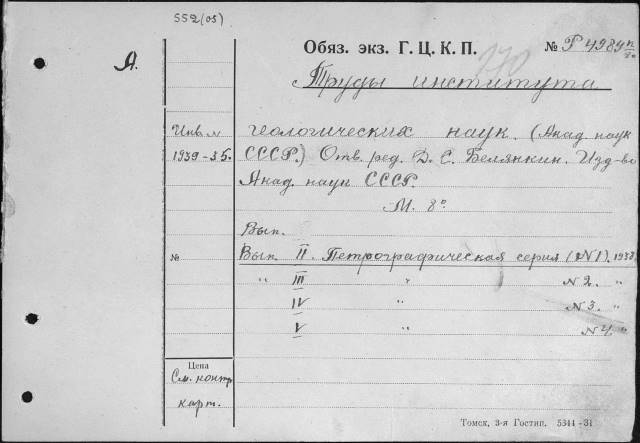 552(05)
А.
Обяз. экз. Г. Ц. К. П. № Р 4989
270
Труды института
Инв. № геологических наук. (Акад. наук
1939-35. СССР.) Отв. ред. Д. С. Белянкин. Изд-во
Акад. наук СССР.
М. 8°.
Вып.
№ Вып. II. Петрографическая серия (№1). 1938.
" III " №2. "
IV " №3. "
V " №4. "
Цена
См. контр.
карт.
Томск, 3-я Гостип. 5344-31